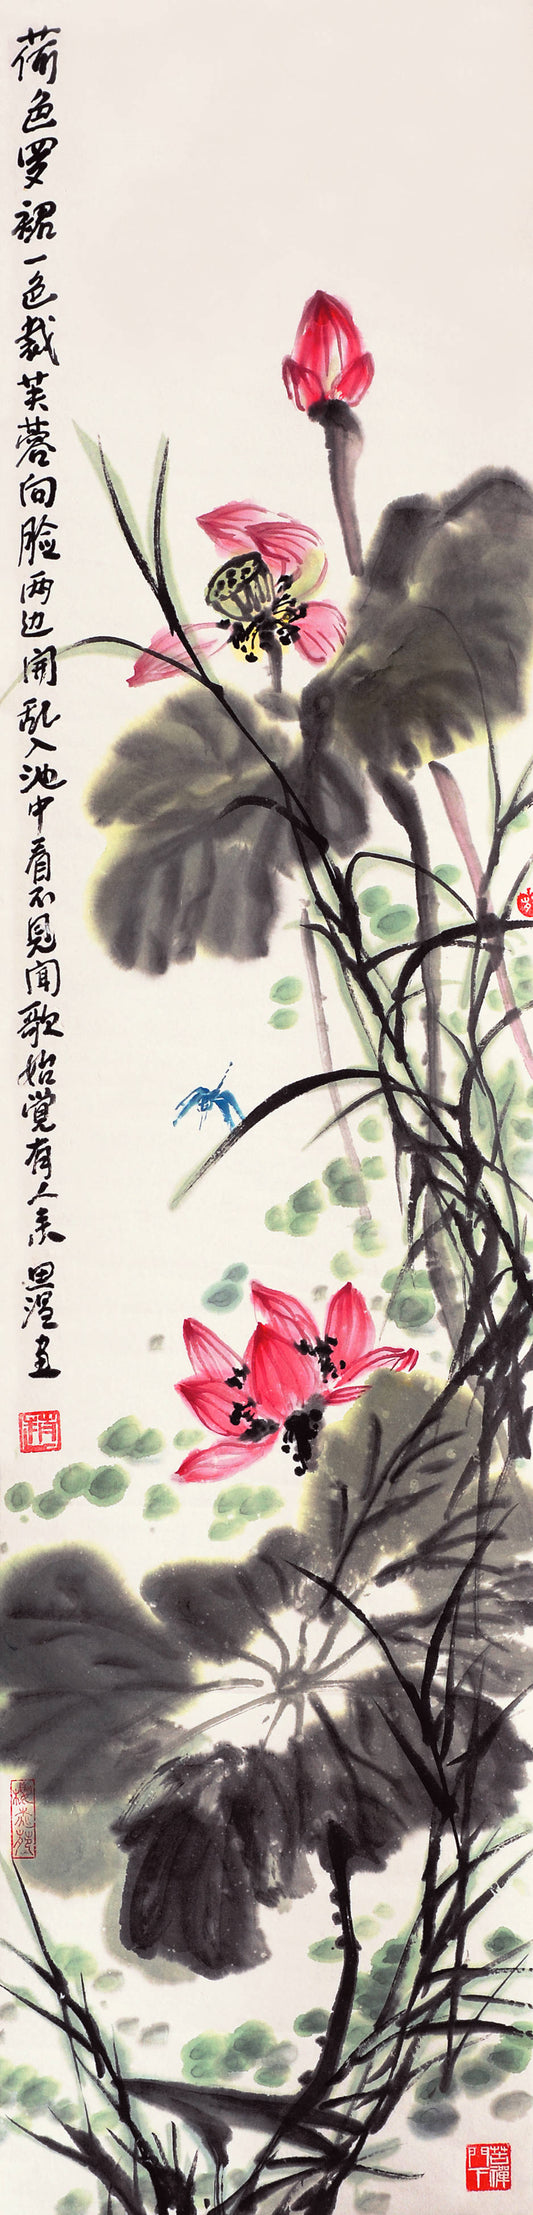 荷色罗裙一色裁芙蓉向脸两边开乱入池中看不见闻歌始觉有人来
苦禪
門下